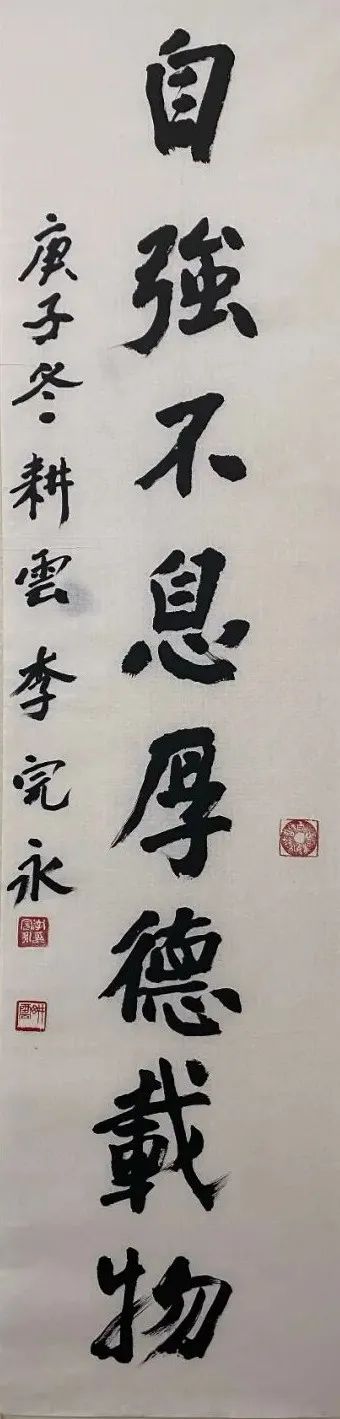 自強不息厚德載物
庚子冬耕雲李完永